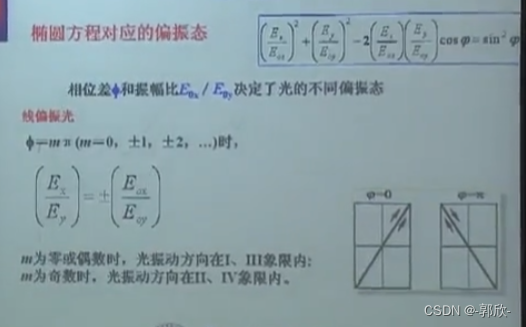 椭圆方程对应的偏振态
(Ex/Eox)² + (Ey/Eoy)² − 2(Ex/Eox)(Ey/Eoy) cos φ = sin² φ
相位差ϕ和振幅比E0x / E0y决定了光的不同偏振态
线偏振光
ϕ=mπ (m=0, ±1, ±2, …)时,
(Ex/Ey) = ±(Eox/Eoy)
φ=0 φ=π
m为零或偶数时,光振动方向在I、III象限内;
m为奇数时,光振动方向在II、IV象限内。
CSDN @-郭欣-